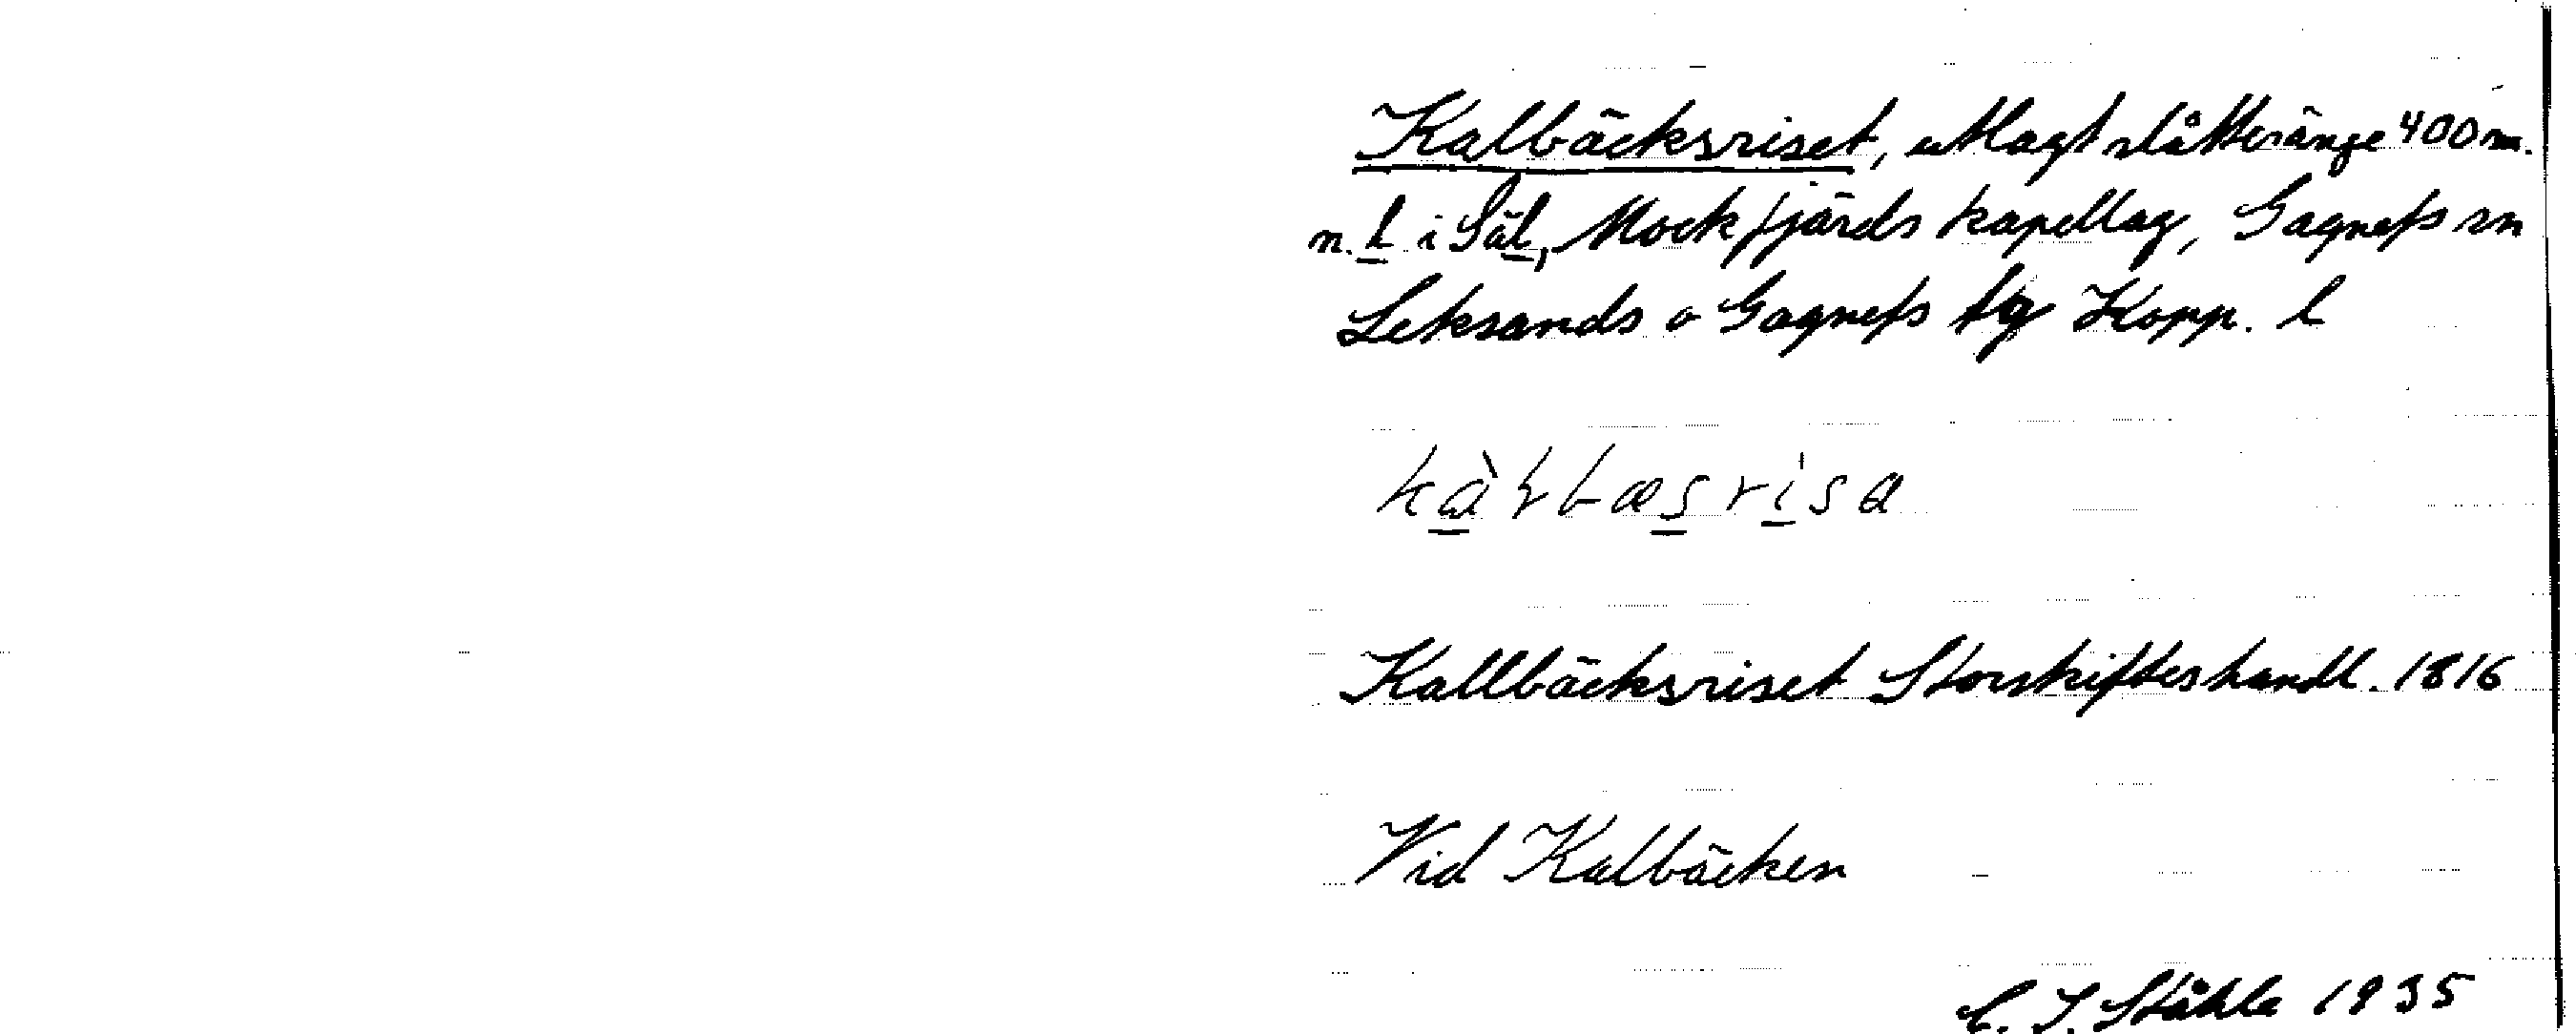 Kalbäcksriset, utlagt slåtteränge 400 m.
n. l i Säl, Mockfjärds kapellag, Gagnefs sn
Leksands o Gagnefs tg Kopp. l
Kallbäcksriset Storskifteshandl. 1816
Vid Kalbäcken
C. I. Ståhle 1935